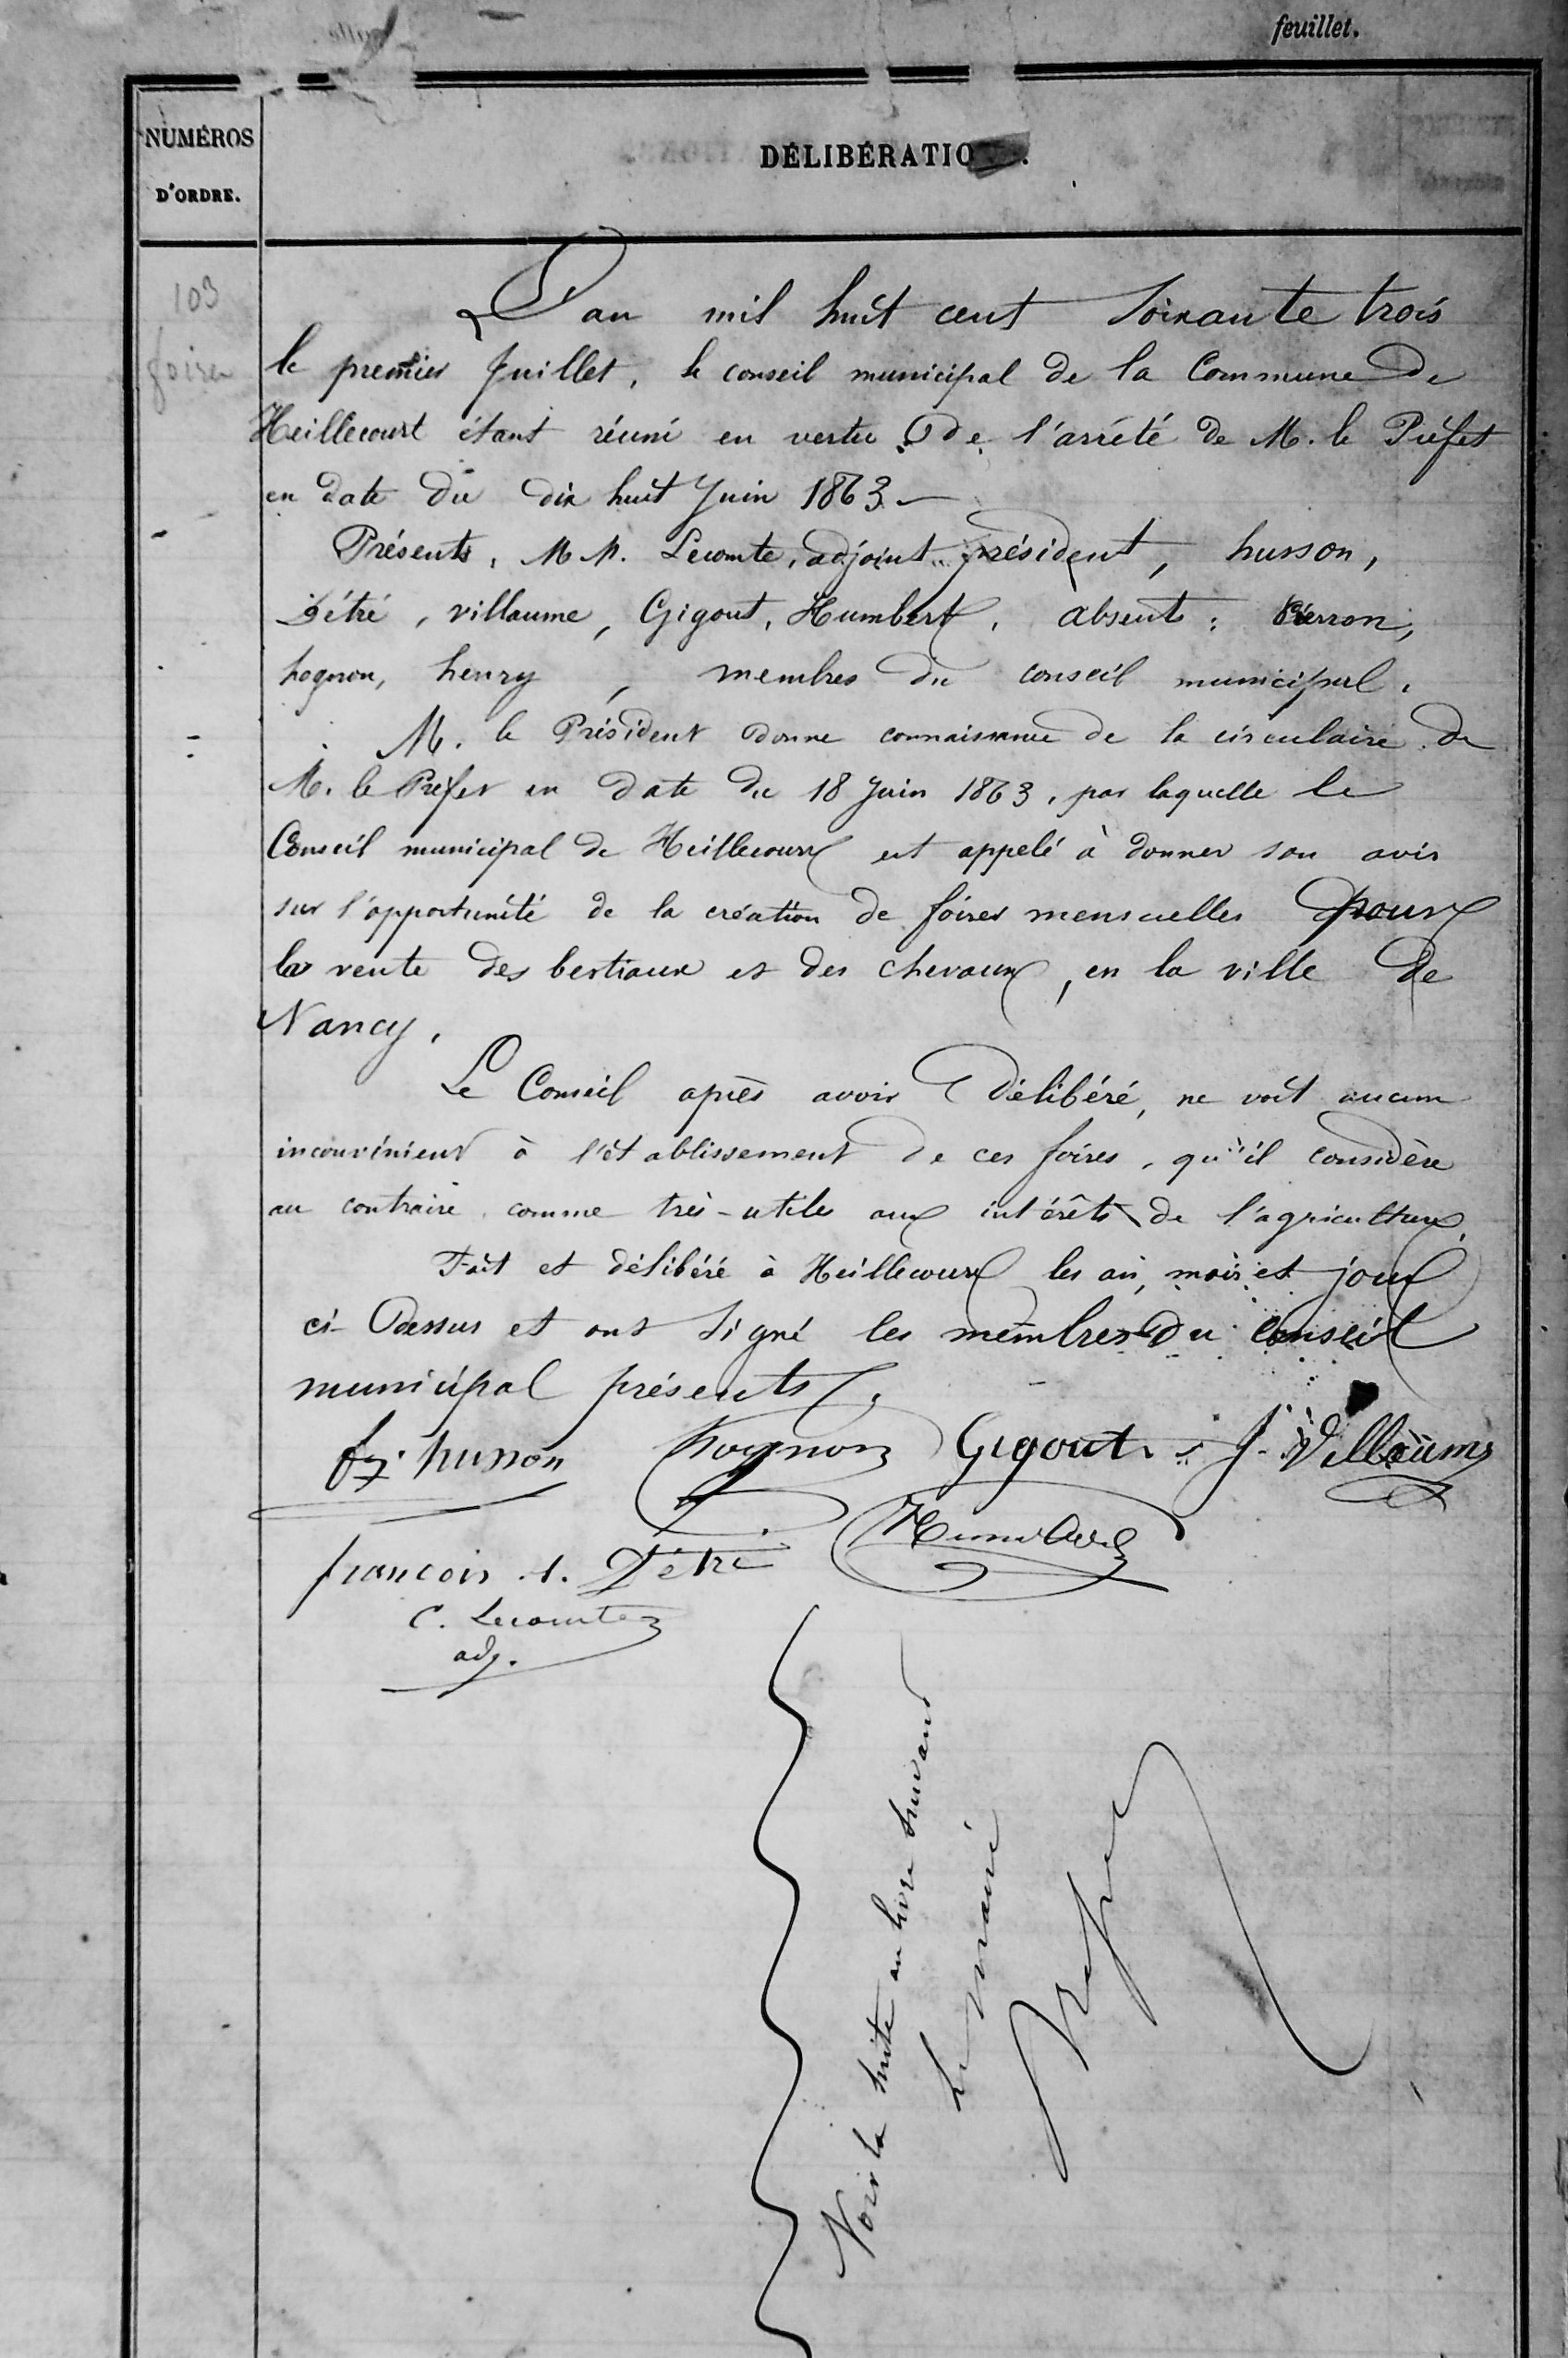 feuillet.
NUMÉROS
D'ORDRE.
DÉLIBÉRATIO
103
foires
L'an mil huit cent soixante trois
le premier Juillet, le conseil municipal de la Commune de
Heillecourt étant réuni en vertu de l'arrêté de M. le Préfet
en date du dix huit Juin 1863 —
Présents, M M. Lecomte, adjoint président, husson,
Détré, villaume, Gigout, Humbert, absents : Pierron,
hognon, henry, membres du conseil municipal.
M. le Président donne connaissance de la circulaire de
M. le Préfet en date du 18 Juin 1863, par laquelle le
Conseil municipal de Heillecourt est appelé à donner son avis
sur l'opportunité de la création de foires mensuelles pour
la vente des bestiaux et des chevaux, en la ville de
Nancy.
Le Conseil après avoir délibéré, ne voit aucun
inconvénient à l'établissement de ces foires, qu'il considère
au contraire comme très-utiles aux intérêts de l'agriculture.
Fait et délibéré à Heillecourt les an, mois et jour
ci-dessus et ont signé les membres du conseil
municipal présents.
fç. husson hognon Gigout J. Villaume
françois Détré Humbert
C. Lecomte
adj.
Voir la suite au livre suivant
Le maire